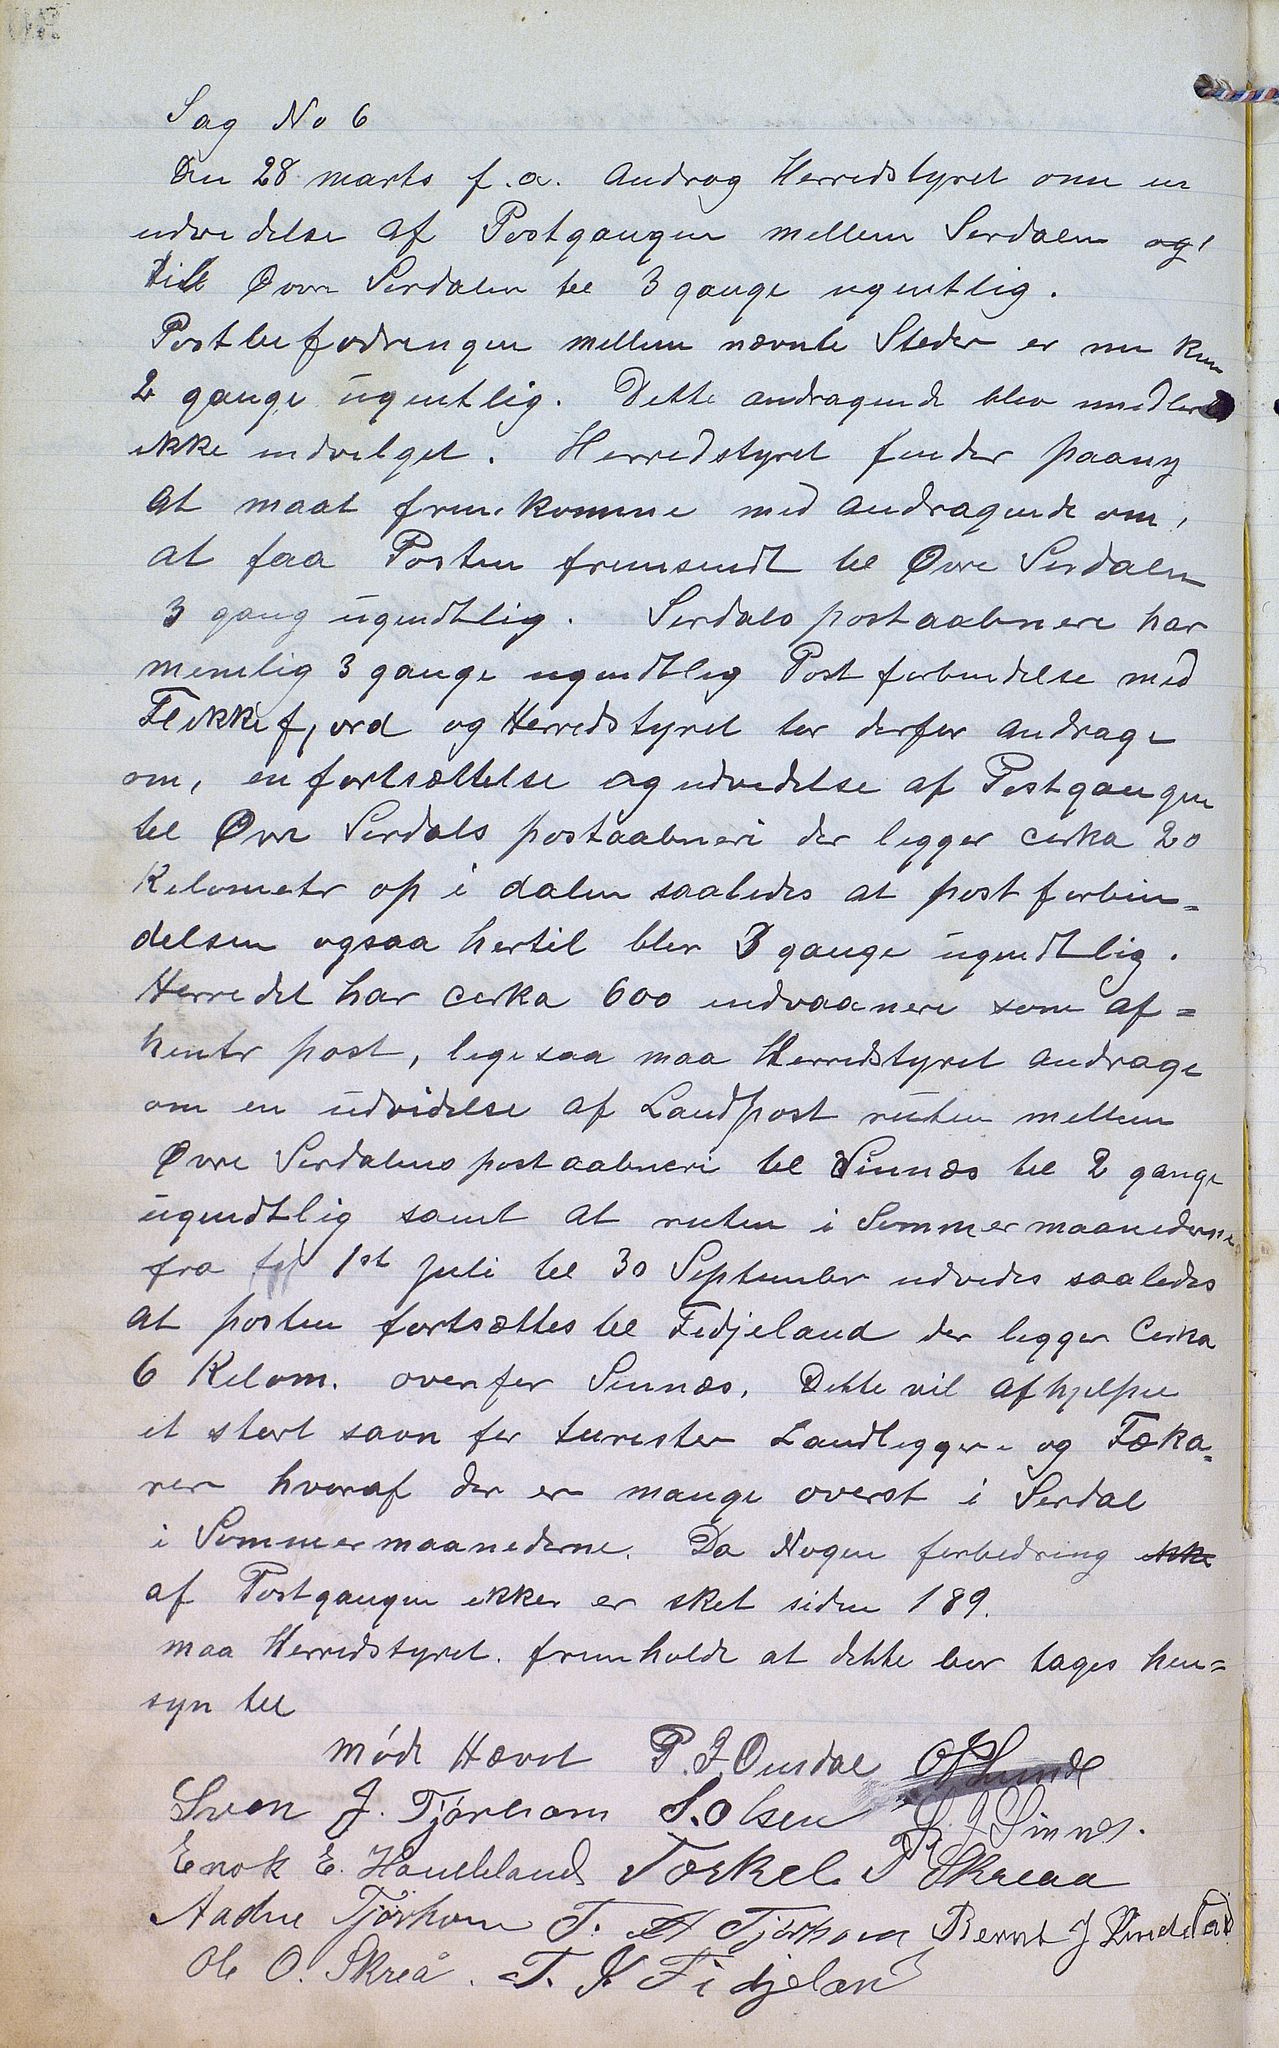 Sag No 6
Den 28 marts f.a. androg Herredstyret om en
udvidelse af Postgangen mellem Serdalen og
till Øvre Serdalen til 3 gange ugentlig.
Postbefodringen mellem nævnte Steder er nu kun
2 gange ugentlig. Dette andragende blev imidlertid
ikke indvilget. Herredstyret finder paany
at maat fremkomme med andragende om,
at faa Posten fremsendt til Øvre Serdalen
3 gang ugendtlig. Serdals postaabneri har
menlig 3 gange ugendtlig Postforbindelse med
Flekkefjord og Herredstyret tor derfor andrage
om, en fortsættelse og udvidelse af Postgangen
til Øvre Serdals postaabneri der ligger cirka 20
Kilometer op i dalen saaledes at postforbin=
delsen ogsaa hertil blev 3 gange ugendtlig.
Herredet har cirka 600 indvaanere som af=
henter post, ligesaa maa Herredstyret andrage
om en udvidelse af Landpost ruten mellem
Øvre Serdalens postaabneri til Sinnæs til 2 gange
ugendtlig samt at ruten i Sommermaanederne
fra 1st juli til 30 September udvides saaledes
at posten fortsættes til Fidjeland der ligger Cirka
6 Kilom. ovenfor Sinnæs. Dette vil afhjelpe
et stort savn for turister Landliggere og Fæka=
rer hvoraf der er mange øverst i Serdal
i Sommermaanederne. Da Nogen forbedring ikke
af Postgangen ikker er sket siden 189.
maa Herredstyret. fremholde at dette bør tages hen=
syn til
Møde Hævet P. J. Ousdal O Lunde
Sven J. Tjørhom S. Olsen S. J. Sinnes.
Enok E. Haukeland Torkel P Skreaa
Aadne Tjørhom T. A Tjørhom Bernt J Lindeland
Ole O. Skreå. T. J. Fidjeland